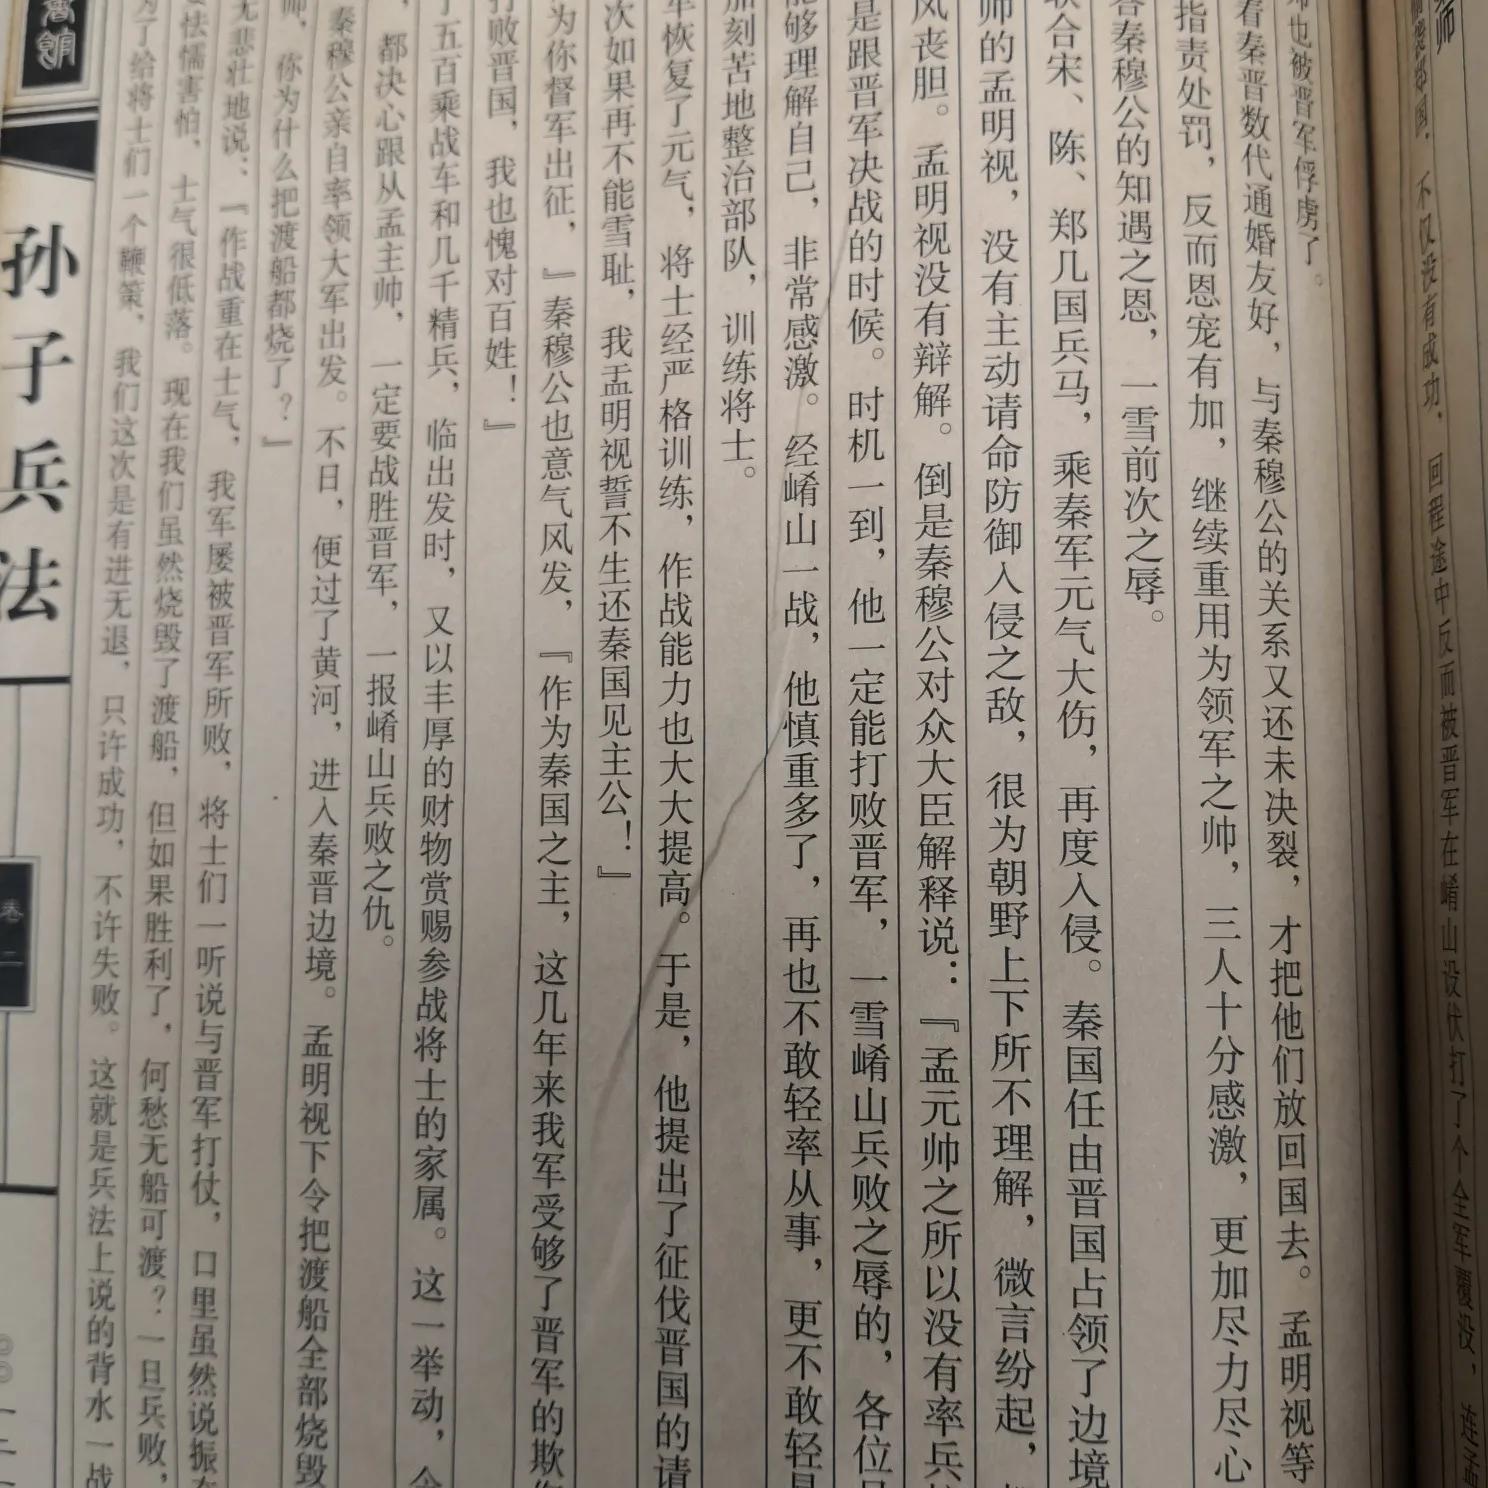 袭郑国，不仅没有成功，回程途中反而被晋军在崤山设伏打了个全军覆没，连孟
帅也被晋军俘虏了。
看秦晋数代通婚友好，与秦穆公的关系又还未决裂，才把他们放回国去。孟明视等
指责处罚，反而恩宠有加，继续重用为领军之帅，三人十分感激，更加尽力尽心
答秦穆公的知遇之恩，一雪前次之辱。
联合宋、陈、郑几国兵马，乘秦军元气大伤，再度入侵。秦国任由晋国占领了边境
帅的孟明视，没有主动请命防御入侵之敌，很为朝野上下所不理解，微言纷起，
风丧胆。孟明视没有辩解。倒是秦穆公对众大臣解释说：『孟元帅之所以没有率兵
是跟晋军决战的时候。时机一到，他一定能打败晋军，一雪崤山兵败之辱的，各位
能够理解自己，非常感激。经崤山一战，他慎重多了，再也不敢轻率从事，更不敢轻
加刻苦地整治部队，训练将士。
军恢复了元气，将士经严格训练，作战能力也大大提高。于是，他提出了征伐晋国的请
次如果再不能雪耻，我孟明视誓不生还秦国见主公！』
为你督军出征，』秦穆公也意气风发，『作为秦国之主，这几年来我军受够了晋军的欺
打败晋国，我也愧对百姓！』
了五百乘战车和几千精兵，临出发时，又以丰厚的财物赏赐参战将士的家属。这一举动，令
，都决心跟从孟主帅，一定要战胜晋军，一报崤山兵败之仇。
秦穆公亲自率领大军出发。不日，便过了黄河，进入秦晋边境。孟明视下令把渡船全部烧毁
帅，你为什么把渡船都烧了？』
无悲壮地说：『作战重在士气，我军屡被晋军所败，将士们一听说与晋军打仗，口里虽然说振
怯懦害怕，士气很低落。现在我们虽然烧毁了渡船，但如果胜利了，何愁无船可渡？一旦兵败，
为了给将士们一个鞭策，我们这次是有进无退，只许成功，不许失败。这就是兵法上说的背水一战
孙子兵法
卷二